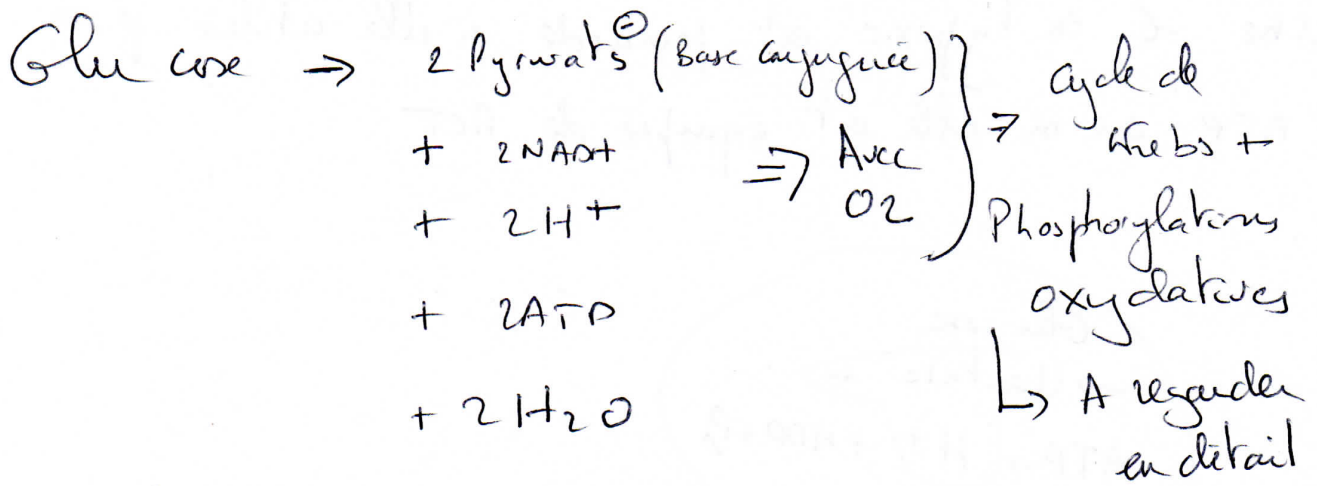 Glucose → 2 Pyruvats⊖ (Base conjuguée)
+ 2NADH
+ 2H+
+ 2ATP
+ 2H2O
⇒ Avec
O2
⇒ Cycle de
Krebs +
Phosphorylations
oxydatives
↳ A regarder
en détail